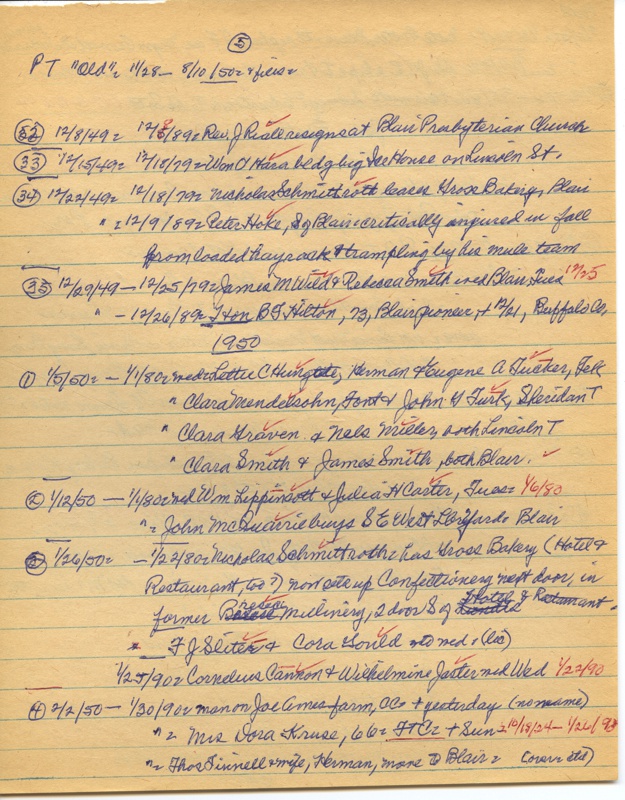 5
PT "Old" = 11/28 - 8/10/50 =
52 12/8/49 = 12/8/89 = Rev. J Riall resigns at Blair Presbyterian Church
33 12/15/49 = 12/18/79 = Won O'Hara bldg big Ice House on Lincoln St.
34 12/22/49 = 12/18/79 = Nicholas Schmittroth leases Gross Bakery, Blair
" = 12/9/89 = Peter Hoke, S of Blair critically injured in fall
from loaded hayrack & trampling by his mule team
35 12/29/49 - 12/25/79 = James M Wild & Rebecca Smith wed Blair, Tues 12/25
" - 12/26/89 = Hon B F Hilton, 73, Blair pioneer, + 12/21, Buffalo Co,
1950
1 1/5/50 = - 1/1/80 = wed = Lettie C Hungate, Herman & Eugene A Tucker, Tek
" Clara Mendelsohn, Font & John G Turk, Sheridan T
" Clara Graven & Nels Miller, both Lincoln T
" Clara Smith & James Smith, both Blair.
2 1/12/50 - 1/1/80 = wed Wm Lippincott & Julia H Carter, Tues = 1/6/80
" = John McQuarrie buys S E West Lbryard Blair
3 1/26/50 = - 1/22/80 = Nicholas Schmittroth = has Gross Bakery (Hotel &
Restaurant, too?) now sets up Confectionery next door, in
former millinery, 2 door S of Hotel & Restaurant.
* F J Sliter & Cora Gould to wed = (lic)
1/25/90 = Cornelius Cannon & Wilhelmine Jaster wed Wed 1/22/90
4 2/2/50 - 1/30/90 = man on Joe Ames farm, CC = + yesterday (no name)
" = Mrs Dora Kruse, 66 = FTC = + Sun = 10/18/24 - 1/26/90
" = Thos Finnell & wife, Herman, move to Blair = (over etd)